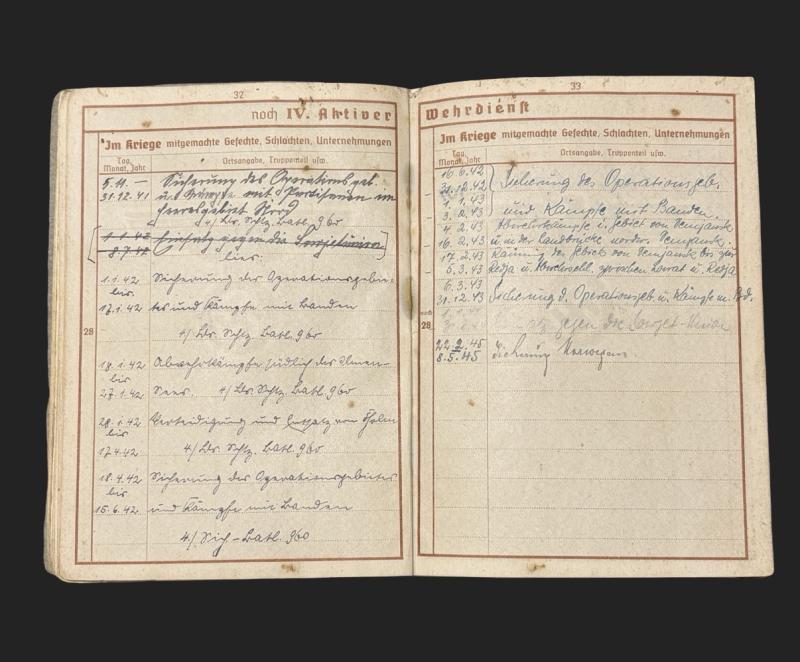 32
noch IV. Aktiver
Im Kriege mitgemachte Gefechte, Schlachten, Unternehmungen
Tag, Monat, Jahr
Ortsangabe, Truppenteil usw.
5.11. —
31.12.41
Sicherung des Operationsgeb.
und Kämpfe mit Partisanen im
Heeresgebiet Nord
4/ Lds. Schtz. Batl. 960
1.1.42
8.7.42
Einsatz gegen die Sowjetunion
1.1.42
bis
17.1.42
Sicherung des Operationsgebie-
tes und Kämpfe mit Banden
28
4/ Lds. Schtz. Batl. 960
18.1.42
bis
27.1.42
Abwehrkämpfe südlich des Ilmen-
Sees. 4/ Lds. Schtz. Batl. 960
28.1.42
bis
17.4.42
Verteidigung und Entsatz von Cholm
4/ Lds. Schtz. Batl. 960
18.4.42
bis
15.6.42
Sicherung des Operationsgebietes
und Kämpfe mit Banden
4./ Sich.-Batl. 960
33
Wehrdienst
Im Kriege mitgemachte Gefechte, Schlachten, Unternehmungen
Tag, Monat, Jahr
Ortsangabe, Truppenteil usw.
16.6.42
31.12.42
1.1.43
3.2.43
Sicherung des Operationsgeb.
und Kämpfe mit Banden.
4.2.43
16.2.43
Abwehrkämpfe i. Gebiet von Demjansk
u. in der Landbrücke Demjansk
17.2.43
5.3.43
Räumung des Gebiets von Demjansk bis zur
Redja u. zwischen Lowat u. Redja
6.3.43
31.12.43
Sicherung d. Operationsgeb. u. Kämpfe m. Bd.
noch 28
gegen die Sowjet-Union
22.2.45
8.5.45
Sicherung Norwegens.